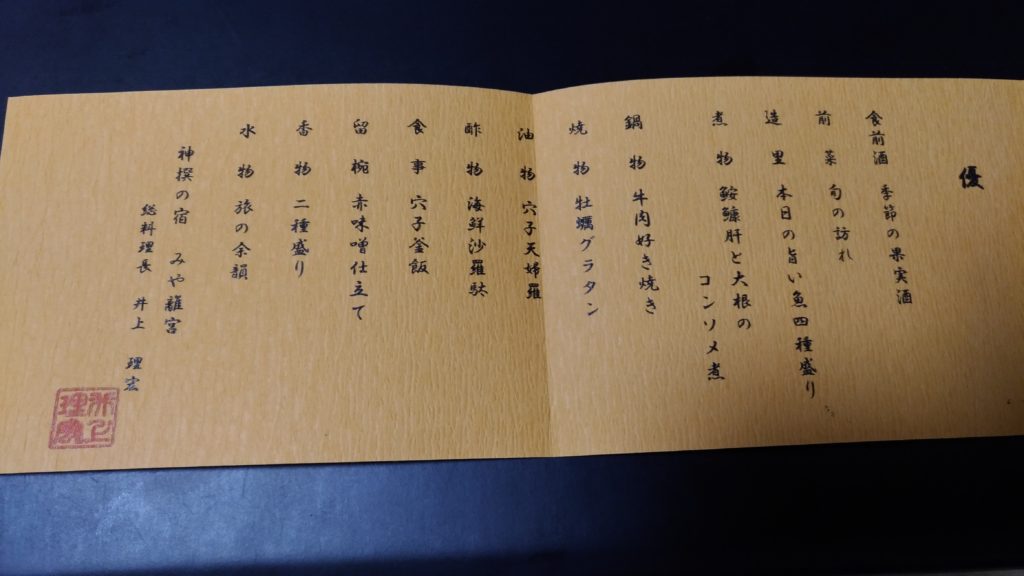 優
食前酒 季節の果実酒
前菜 旬の訪れ
造里 本日の旨い魚四種盛り
煮物 鮟鱇肝と大根の
コンソメ煮
鍋物 牛肉好き焼き
焼物 牡蠣グラタン
油物 穴子天婦羅
酢物 海鮮沙羅駄
食事 穴子釜飯
留椀 赤味噌仕立て
香物 二種盛り
水物 旅の余韻
神撰の宿 みや離宮
総料理長 井上 理宏
井上
理宏